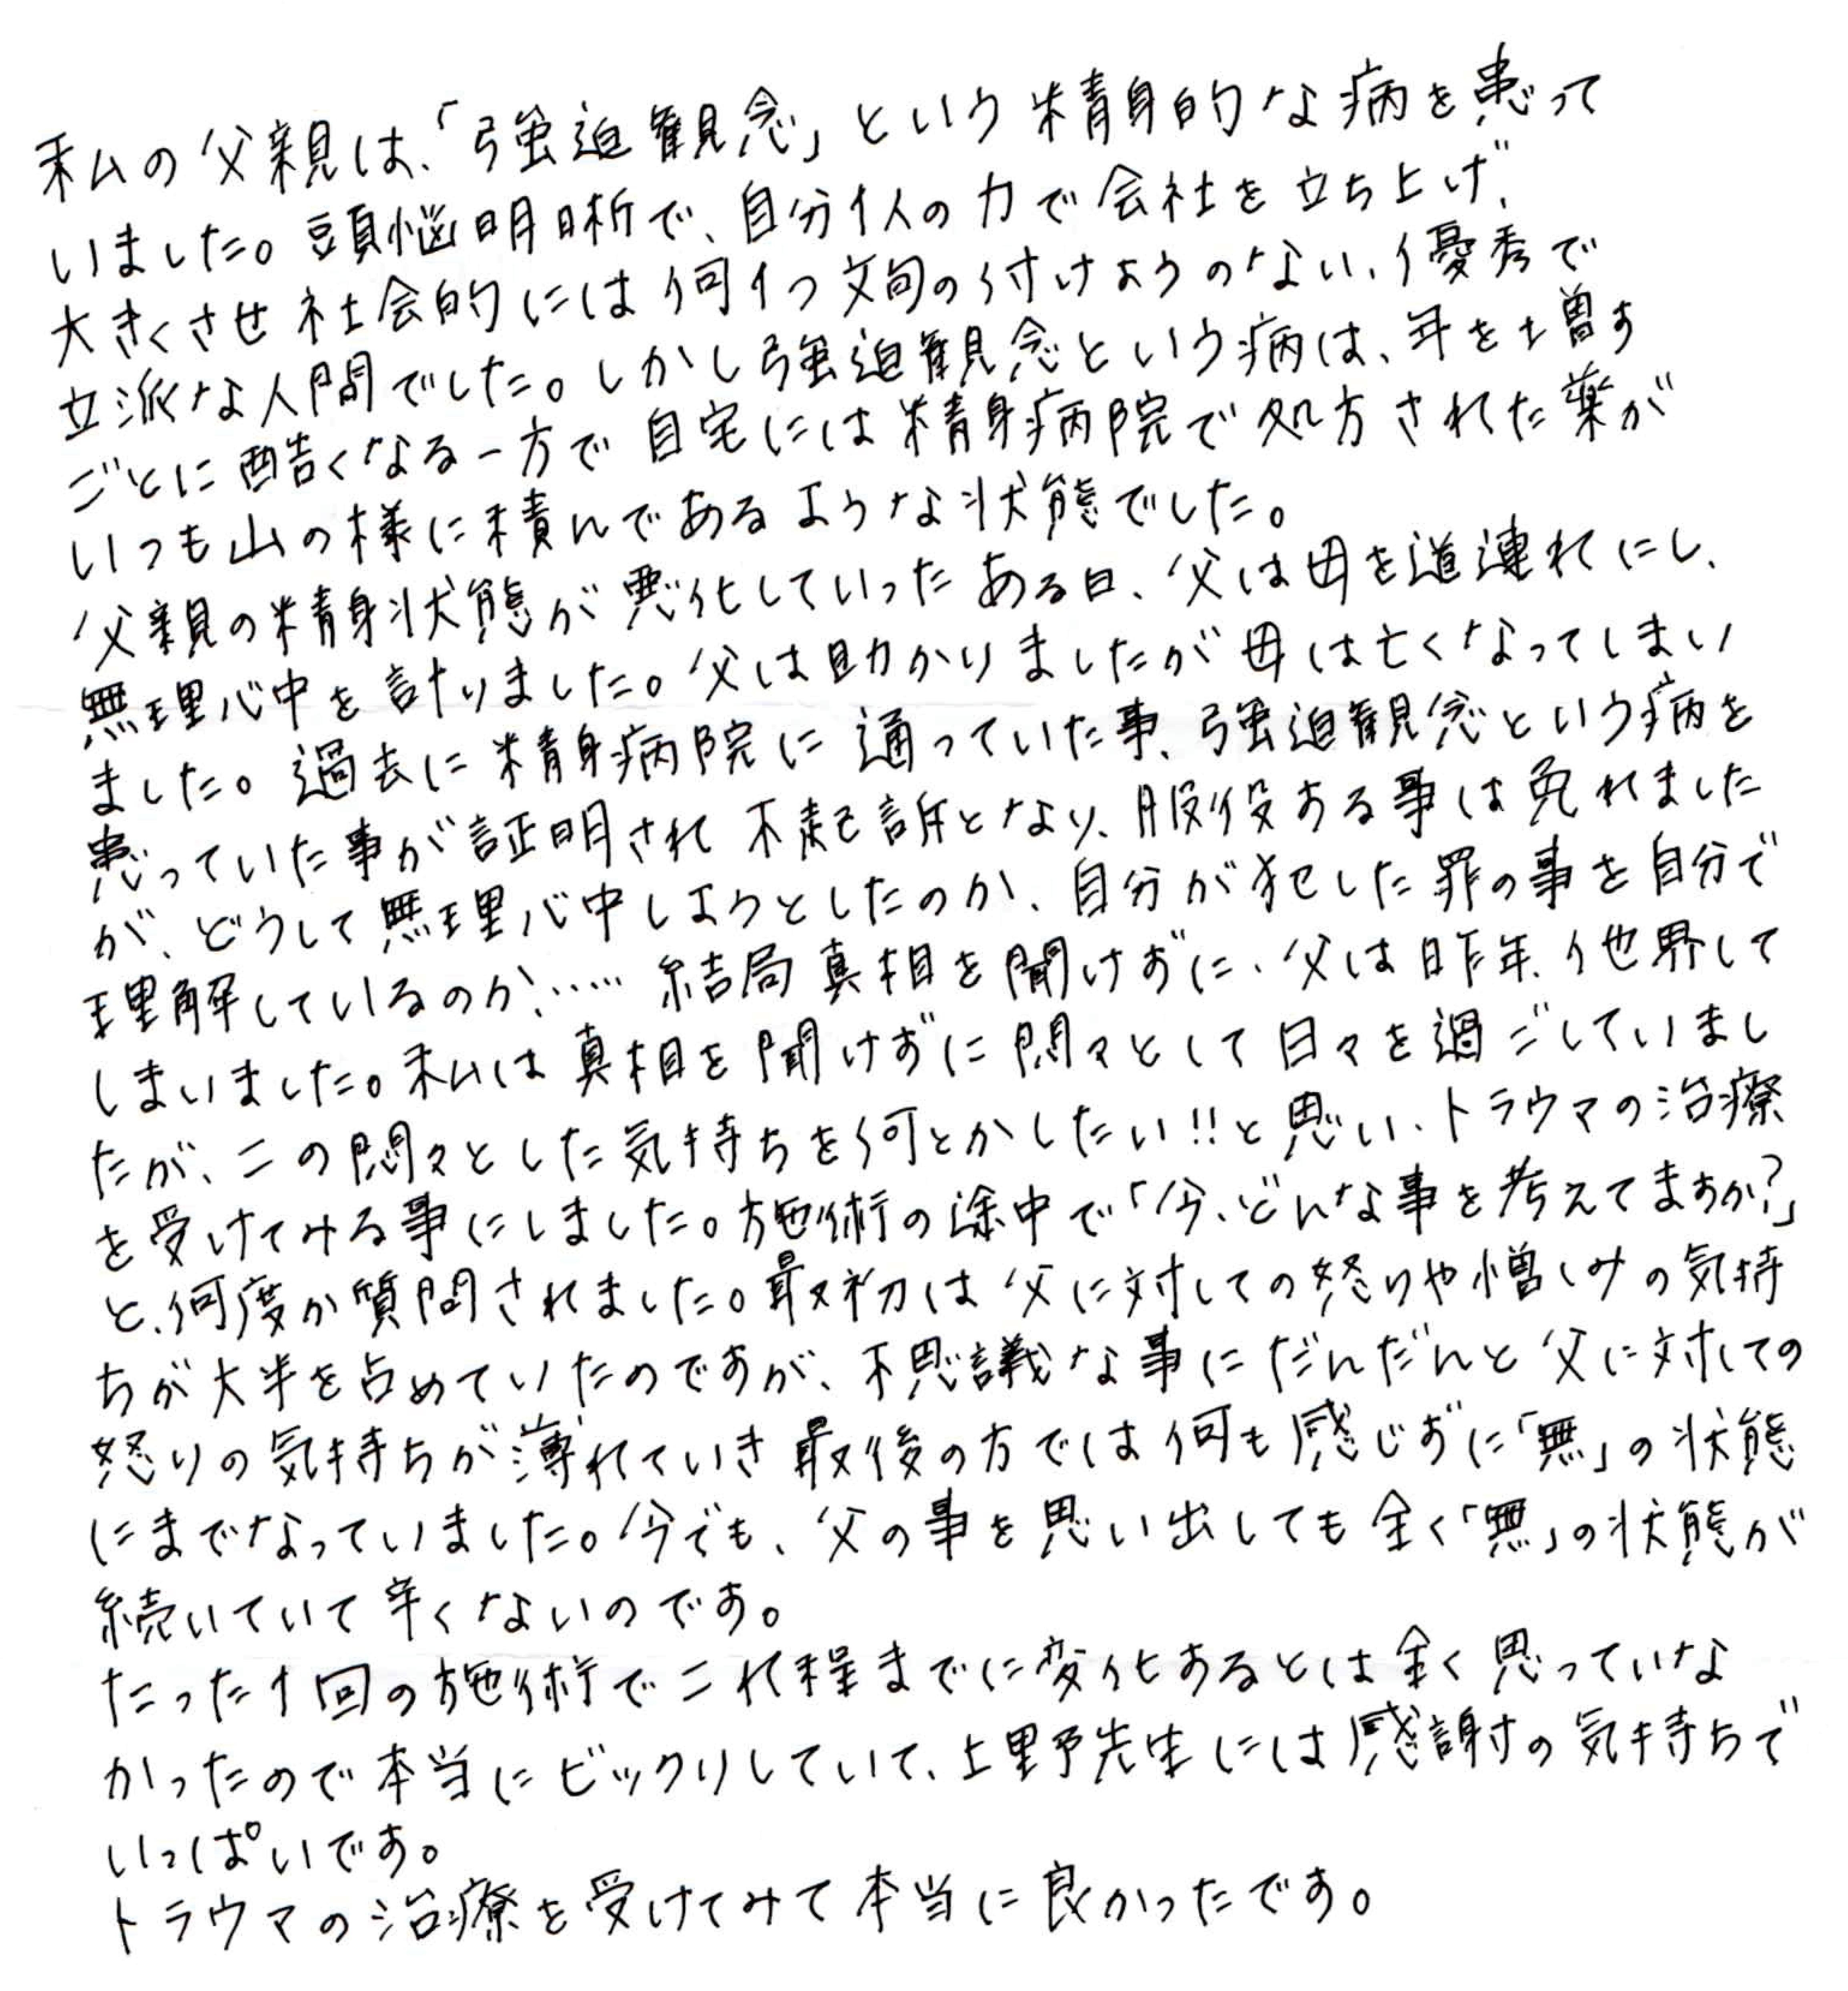 私の父親は、「強迫観念」という精身的な病を患って
いました。頭悩明晰で、自分1人の力で会社を立ち上げ、
大きくさせ社会的には何1つ文句の付けようのない、優秀で
立派な人間でした。しかし強迫観念という病は、年を増す
ごとに酷くなる一方で自宅には精身病院で処方された薬が
いつも山の様に積んであるような状態でした。
父親の精身状態が悪化していったある日、父は母を道連れにし、
無理心中を計りました。父は助かりましたが母は亡くなってしまい
ました。過去に精身病院に通っていた事、強迫観念という病を
患っていた事が証明され不起訴となり、服役する事は免れました
が、どうして無理心中しようとしたのか、自分が犯した罪の事を自分で
理解しているのか、……結局真相を聞けずに、父は昨年、他界して
しまいました。私は真相を聞けずに悶々として日々を過ごしていまし
たが、この悶々とした気持ちを何とかしたい!!と思い、トラウマの治療
を受けてみる事にしました。施術の途中で「今、どんな事を考えてますか?」
と、何度か質問されました。最初は父に対しての怒りや憎しみの気持
ちが大半を占めていたのですが、不思議な事にだんだんと父に対しての
怒りの気持ちが薄れていき最後の方では何も感じずに「無」の状態
にまでなっていました。今でも、父の事を思い出しても全く「無」の状態が
続いていて辛くないのです。
たった1回の施術でこれ程までに変化するとは全く思っていな
かったので本当にビックリしていて、上野先生には感謝の気持ちで
いっぱいです。
トラウマの治療を受けてみて本当に良かったです。